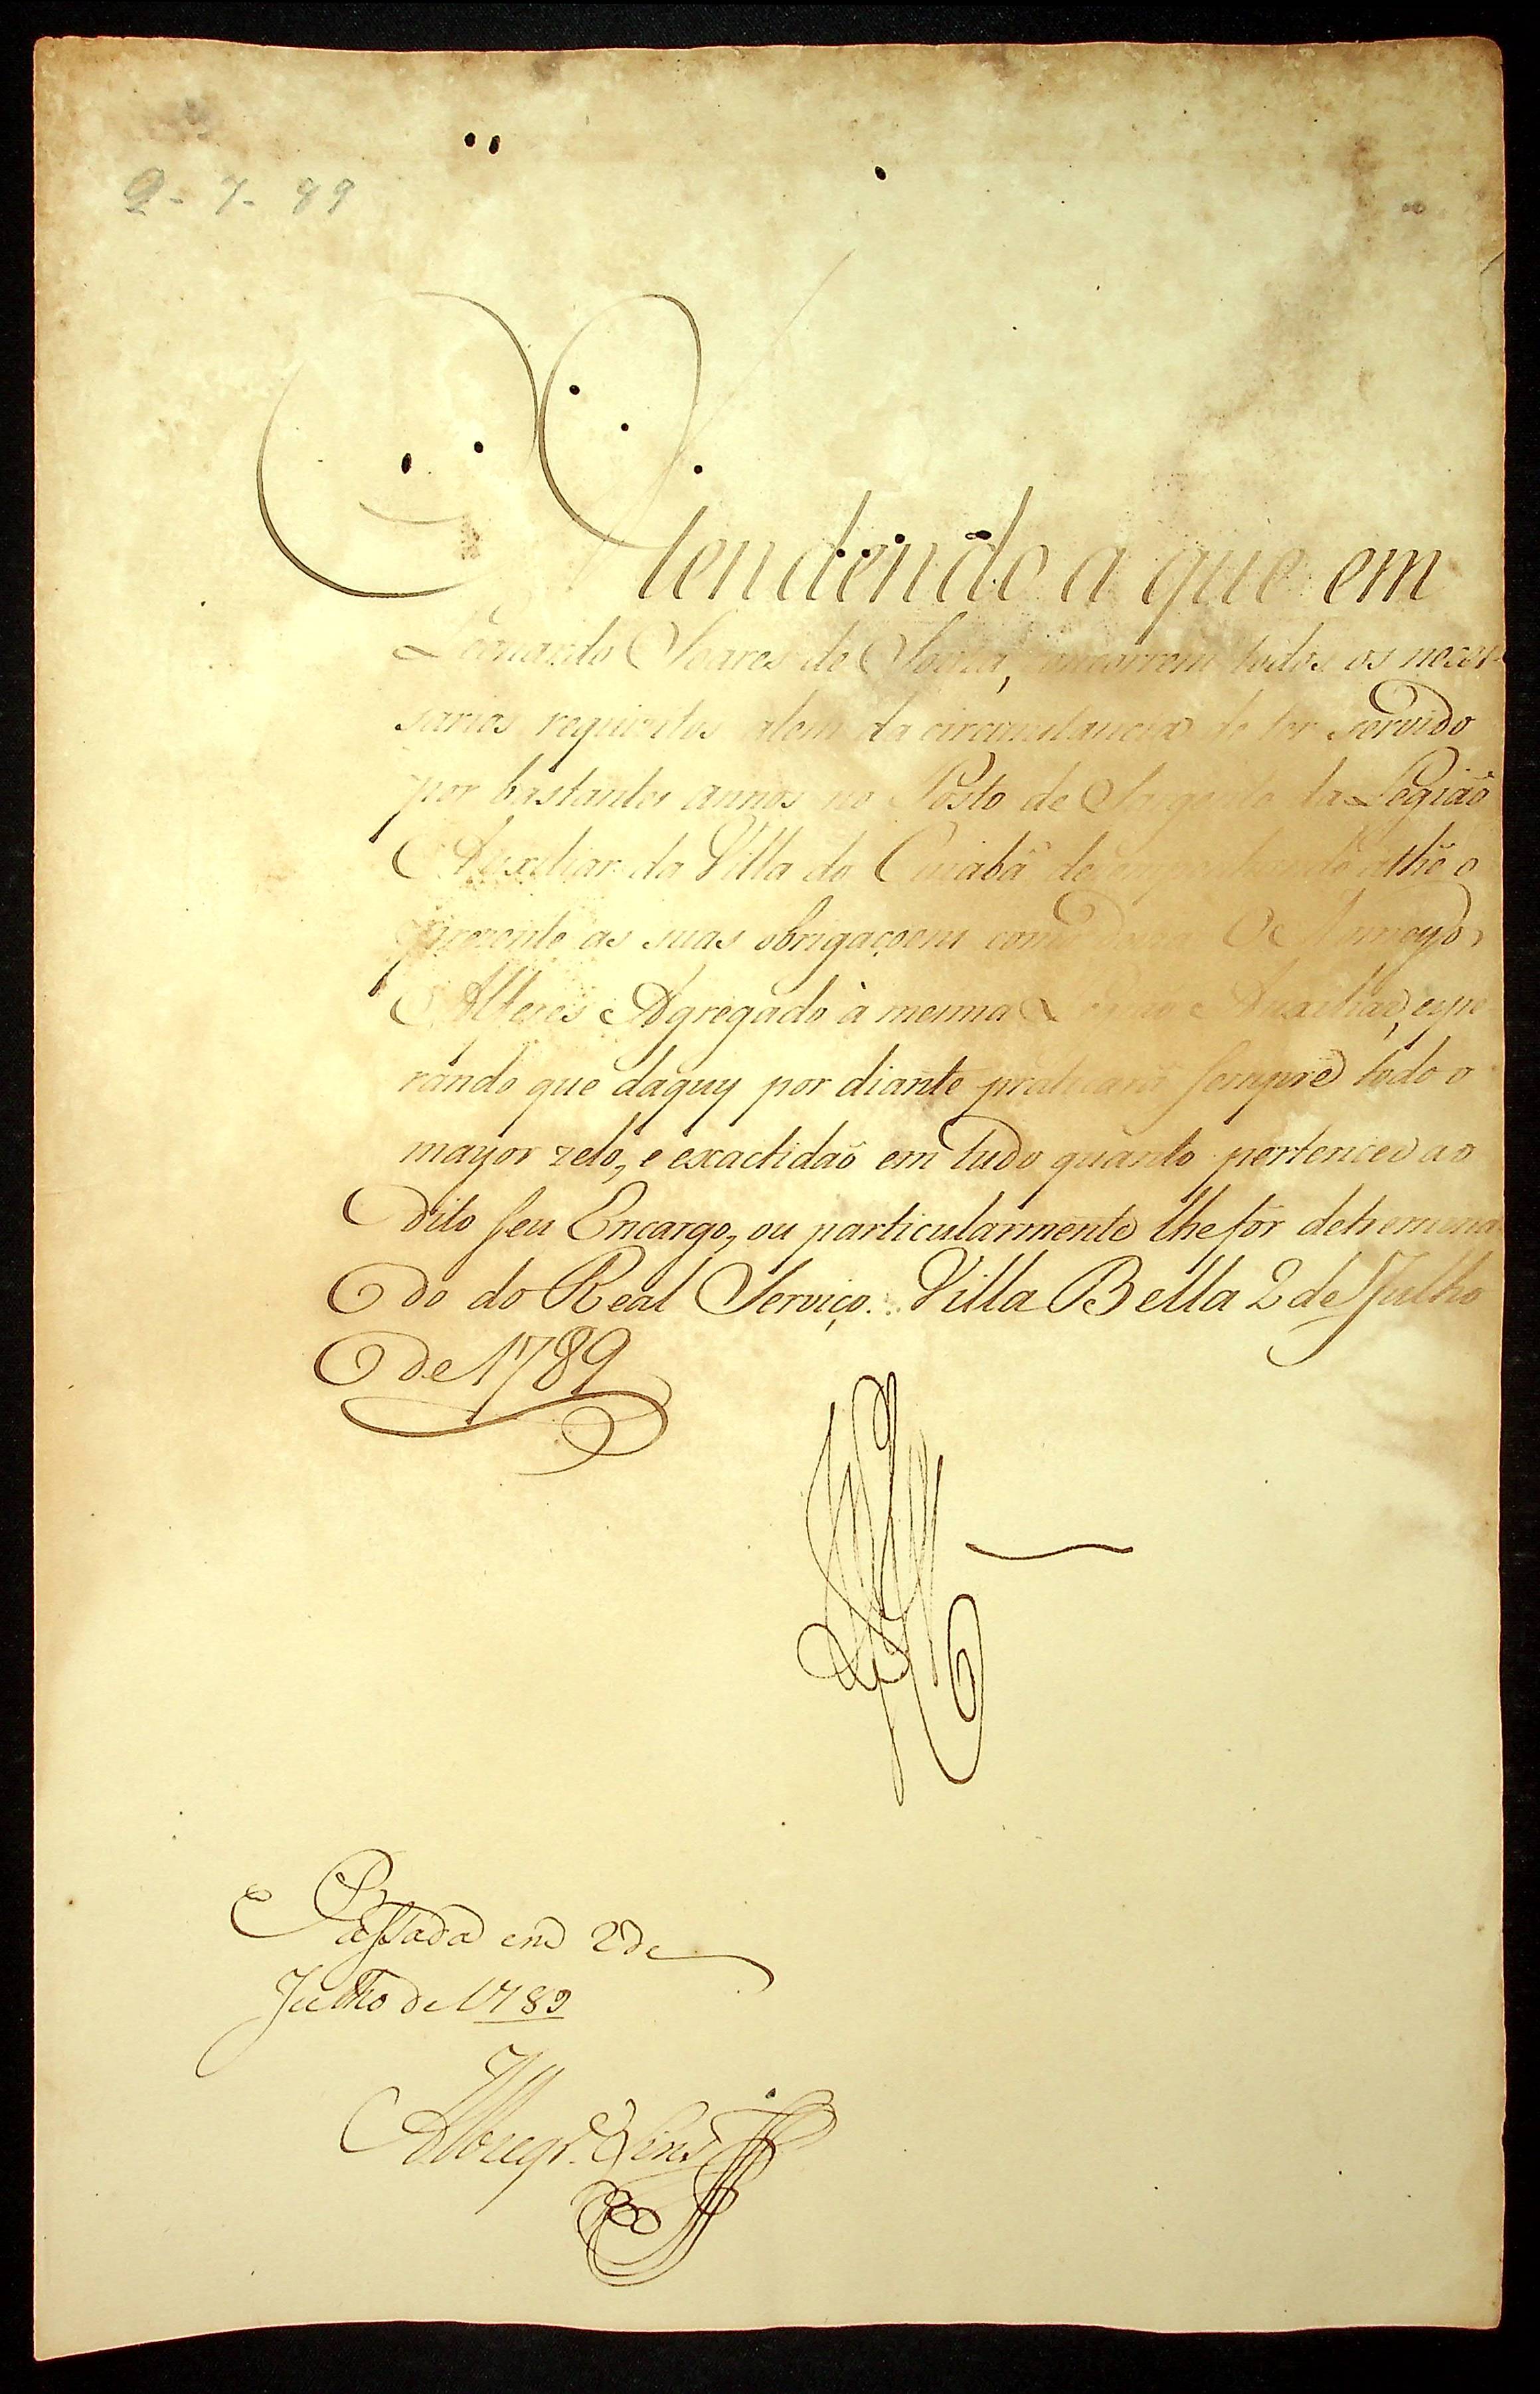 2-7-89
Attendendo a que em
Leonardo Soares de Souza, concorrem todos os neces-
sarios requizitos alem da circunstancia de ter servido
por bastantes annos no Posto de da Legião
Auxiliar da Villa do Cuiabá athé o
prezente as suas obrigaçoens com O Nomeyo
Alferes Agregado à mesma Legiao Auxiliar, espe
rando que daquy por diante praticará sempre todo o
mayor zelo, e exactidaõ em tudo quanto pertencer ao
dito seu Encargo, ou particularmente lhe for detremina
do do Real Serviço. Villa Bella 2 de Julho
de 1789
Passada em 2 de
Julho de 1789